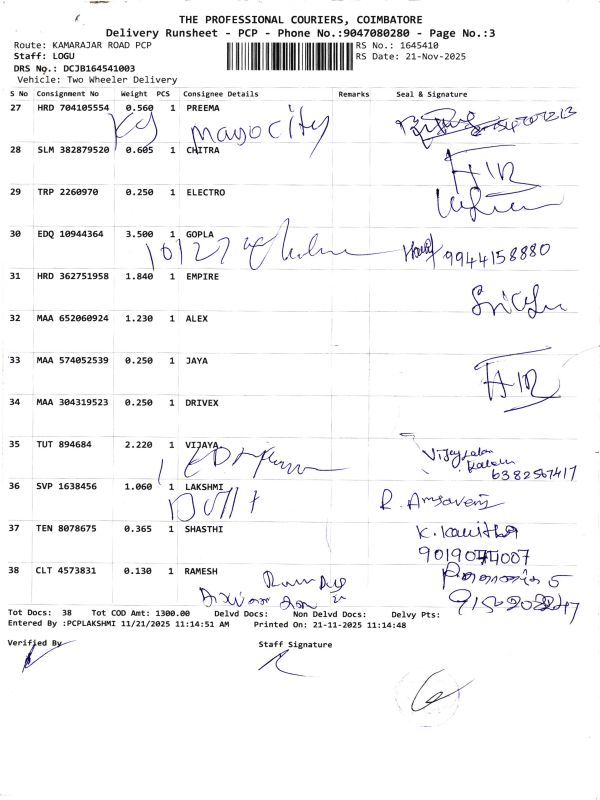 THE PROFESSIONAL COURIERS, COIMBATORE
Delivery Runsheet - PCP - Phone No.:9047080280 - Page No.:3
Route: KAMARAJAR ROAD PCP
RS No.: 1645410
Staff: LOGU
RS Date: 21-Nov-2025
DRS No.: DCJB164541003
Vehicle: Two Wheeler Delivery
S No Consignment No Weight PCS Consignee Details Remarks Seal & Signature
27 HRD 704105554 0.560 1 PREEMA
28 SLM 382879520 0.605 1 CHITRA
29 TRP 2260970 0.250 1 ELECTRO
30 EDQ 10944364 3.500 1 GOPLA
9944158880
31 HRD 362751958 1.840 1 EMPIRE
32 MAA 652060924 1.230 1 ALEX
33 MAA 574052539 0.250 1 JAYA
34 MAA 304319523 0.250 1 DRIVEX
35 TUT 894684 2.220 1 VIJAYA
6382567417
36 SVP 1638456 1.060 1 LAKSHMI
37 TEN 8078675 0.365 1 SHASTHI
K. Kavitha
38 CLT 4573831 0.130 1 RAMESH
Tot Docs: 38 Tot COD Amt: 1300.00 Delvd Docs: Non Delvd Docs: Delvy Pts:
Entered By :PCPLAKSHMI 11/21/2025 11:14:51 AM Printed On: 21-11-2025 11:14:48
Verified By Staff Signature